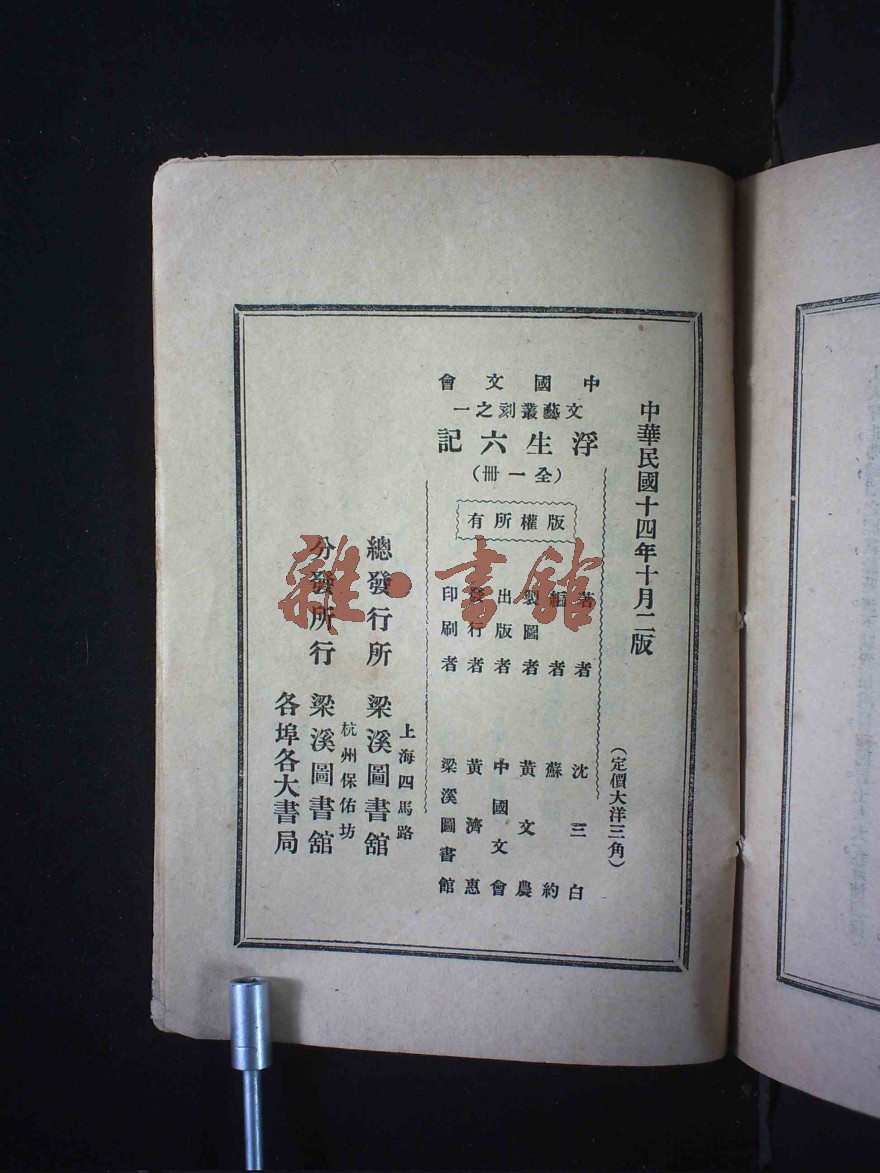 中華民國十四年十月二版
（定價大洋三角）
中國文會
文藝叢刻之一
浮生六記
（全一冊）
版權所有
著者 沈三白
編者 蘇約
製圖者 黃文農
出版者 中國文會
發行者 黃濟惠
印刷者 梁溪圖書館
總發行所 上海四馬路 梁溪圖書舘
分發所行 杭州保佑坊 梁溪圖書舘
各埠各大書局
雜·書館